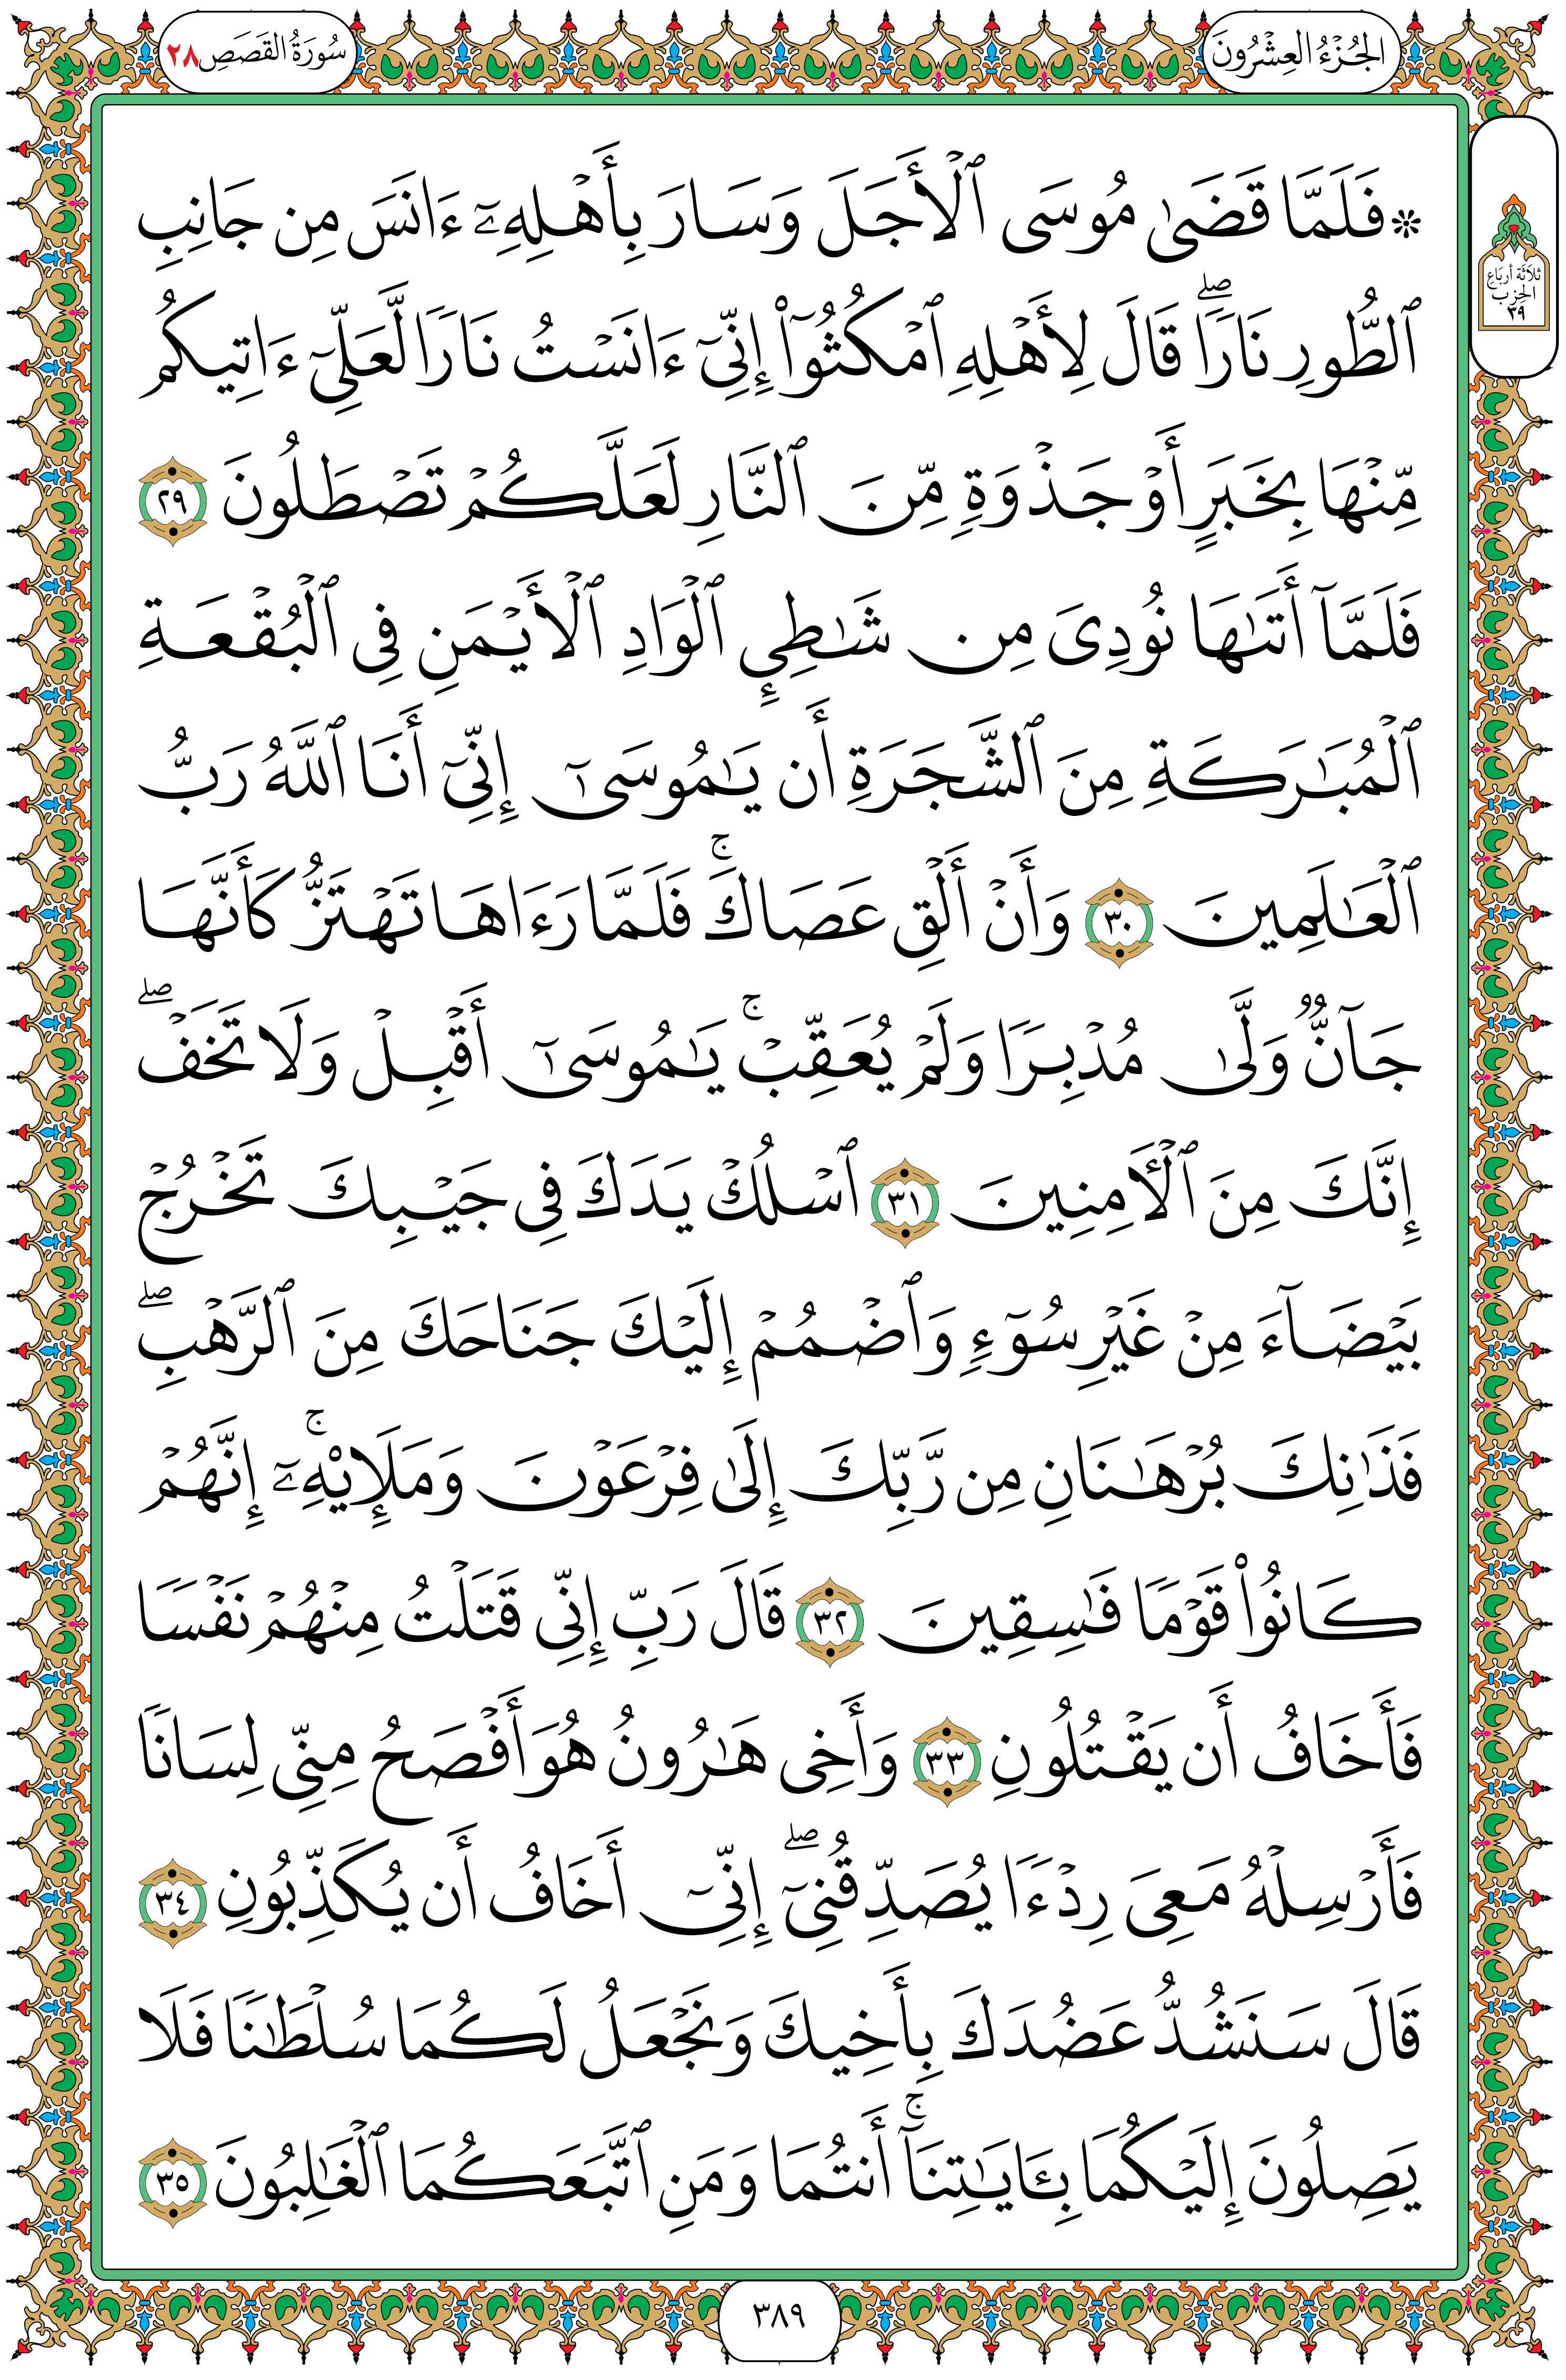 الجُزْءُ العِشْرُونَ
سُورَةُ القَصَصِ ٢٨
ثلاثة أرباع
الحزب
٣٩
۞ فَلَمَّا قَضَىٰ مُوسَى ٱلْأَجَلَ وَسَارَ بِأَهْلِهِۦٓ ءَانَسَ مِن جَانِبِ
ٱلطُّورِ نَارًاۖ قَالَ لِأَهْلِهِ ٱمْكُثُوٓا۟ إِنِّىٓ ءَانَسْتُ نَارًا لَّعَلِّىٓ ءَاتِيكُم
مِّنْهَا بِخَبَرٍ أَوْ جَذْوَةٍ مِّنَ ٱلنَّارِ لَعَلَّكُمْ تَصْطَلُونَ ٢٩
فَلَمَّآ أَتَىٰهَا نُودِىَ مِن شَٰطِئِ ٱلْوَادِ ٱلْأَيْمَنِ فِى ٱلْبُقْعَةِ
ٱلْمُبَٰرَكَةِ مِنَ ٱلشَّجَرَةِ أَن يَٰمُوسَىٰٓ إِنِّىٓ أَنَا ٱللَّهُ رَبُّ
ٱلْعَٰلَمِينَ ٣٠ وَأَنْ أَلْقِ عَصَاكَۚ فَلَمَّا رَءَاهَا تَهْتَزُّ كَأَنَّهَا
جَآنٌّ وَلَّىٰ مُدْبِرًا وَلَمْ يُعَقِّبْۚ يَٰمُوسَىٰٓ أَقْبِلْ وَلَا تَخَفْۖ
إِنَّكَ مِنَ ٱلْأٓمِنِينَ ٣١ ٱسْلُكْ يَدَكَ فِى جَيْبِكَ تَخْرُجْ
بَيْضَآءَ مِنْ غَيْرِ سُوٓءٍ وَٱضْمُمْ إِلَيْكَ جَنَاحَكَ مِنَ ٱلرَّهْبِۖ
فَذَٰنِكَ بُرْهَٰنَانِ مِن رَّبِّكَ إِلَىٰ فِرْعَوْنَ وَمَلَإِي۟هِۦٓۚ إِنَّهُمْ
كَانُوا۟ قَوْمًا فَٰسِقِينَ ٣٢ قَالَ رَبِّ إِنِّى قَتَلْتُ مِنْهُمْ نَفْسًا
فَأَخَافُ أَن يَقْتُلُونِ ٣٣ وَأَخِى هَٰرُونُ هُوَ أَفْصَحُ مِنِّى لِسَانًا
فَأَرْسِلْهُ مَعِىَ رِدْءًا يُصَدِّقُنِىٓۖ إِنِّىٓ أَخَافُ أَن يُكَذِّبُونِ ٣٤
قَالَ سَنَشُدُّ عَضُدَكَ بِأَخِيكَ وَنَجْعَلُ لَكُمَا سُلْطَٰنًا فَلَا
يَصِلُونَ إِلَيْكُمَا بِـَٔايَٰتِنَآۚ أَنتُمَا وَمَنِ ٱتَّبَعَكُمَا ٱلْغَٰلِبُونَ ٣٥
٣٨٩